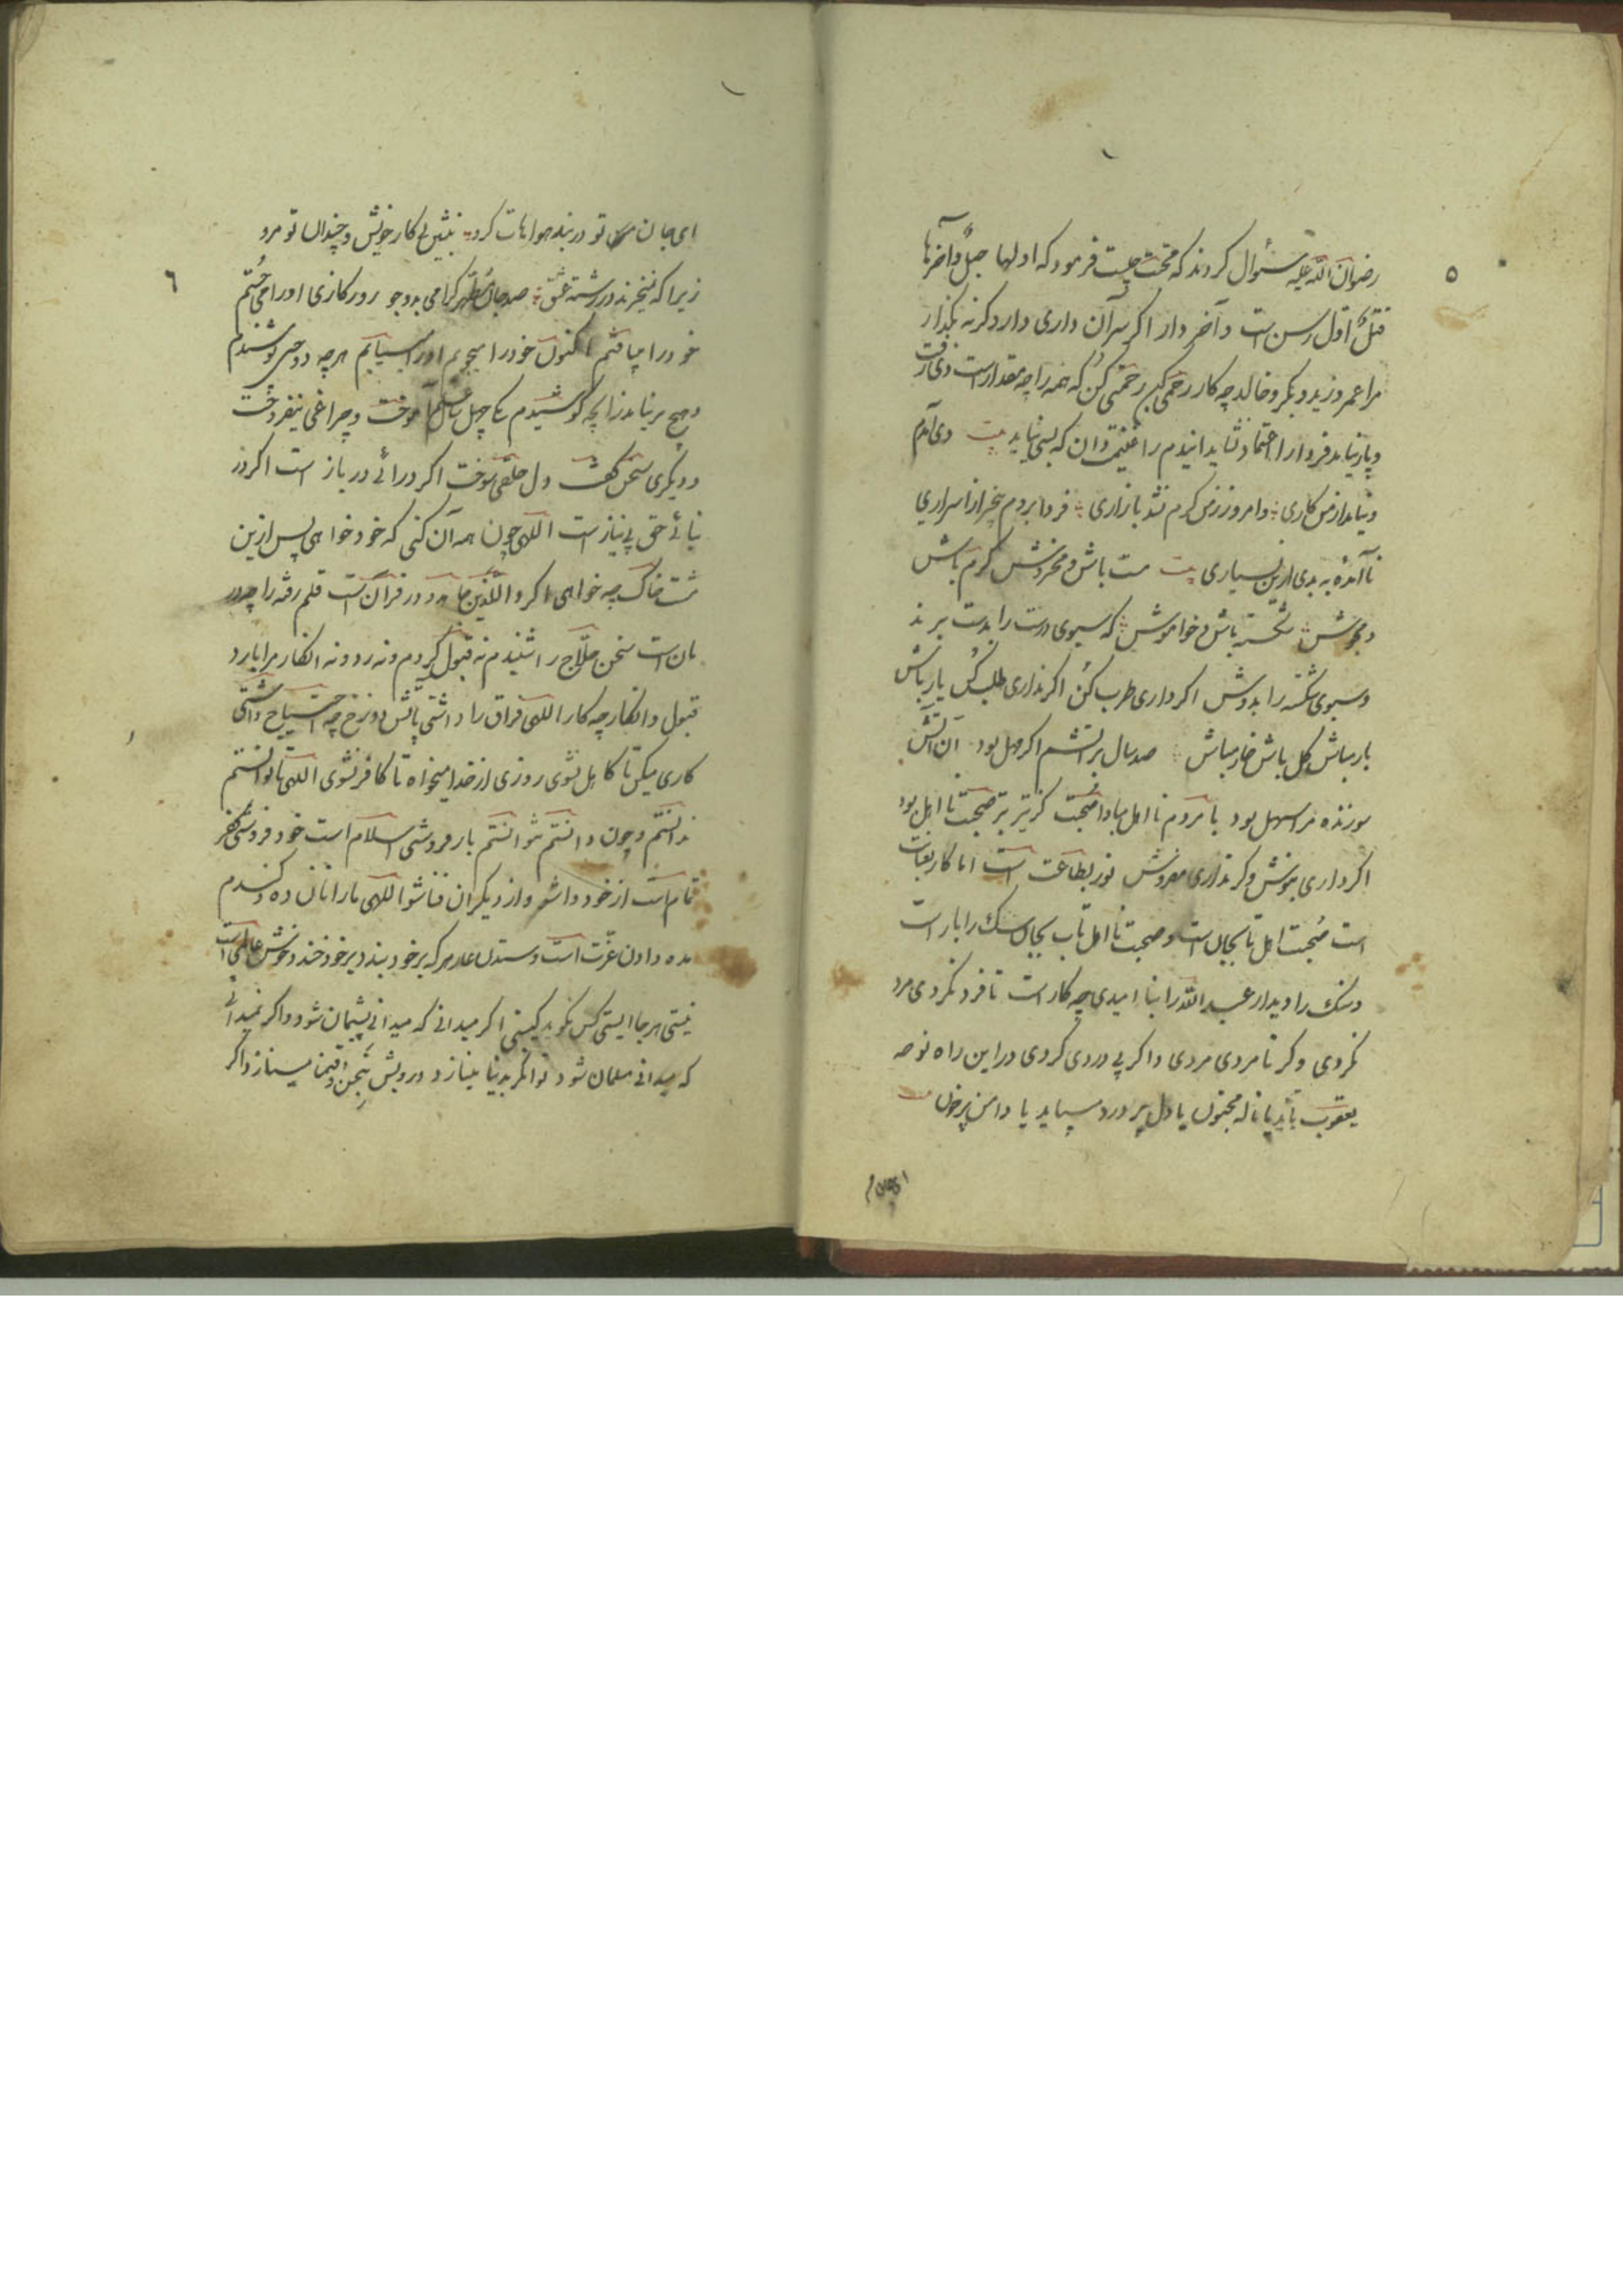 ۵
رضوان الله علیه سئوال کردند که محبت چیست فرمود که اولها حبل و آخرها
قتل اول رسن است و آخر دار اکر سر آن داری در آر و کرنه بکذار
مرا عمر و زید و بکر و خالد چه کار رحمی کن که همه را چه مقدار است دی رفت
و باز نیاید فردا را اعتماد نشاید ایندم را غنیمت دان که بسی نپاید بیت دی آمدم
و نیامد از من کاری و امروز ز من کرم نشد بازاری فردا بروم بیخبر از اسراری
نا آمده به بدی ازین بسیاری بیت مست باش و مخروش کرم باش
و مجوش شکسته باش و خاموش که سبوی درست را بدست برند
و سبوی شکسته را بدوش اکر داری طرب کن اکر نداری طلب کن یار باش
بار مباش کل باش خار مباش صد سال بر آتشم اکر مهل بود آن آتش
سوزنده مرا سهل بود با مردم نا اهل مبادا صحبت کز مرک بتر صحبت نا اهل بود
اکر داری بپوش و کر نداری مفروش نور بطاعت است اما کار بعنایت
است صحبت اهل تاب جان است و صحبت نا اهل تاب جان سک را بار است
و سنک را دیدار عبد الله را بنا امیدی چه کار است تا فرد نکردی مرد
نکردی و کر نامردی مردی و اکر پی دردی کردی در این راه نوحه
یعقوب باید یا ناله مجنون یا دل پر درد میباید یا دامن پر خون بیت
ای جان
۶
ای جان تو در بند هوا مات کرد بنشین پی کار خویش و چندان تو مرد
زیرا که نخرند در رشته عشق صد جان مطهر کرامی بدو جو روزکاری او را می جستم
خود را مییافتم اکنون خود را میجویم او را مییابم هرچه دوختی پوشیدم
و هیچ بر نیامد زآنچه کوشیدم یکی چهل سال علم آموخت و چراغی نیفروخت
و دیکری سخن کفت و دل خلقی سوخت اکر در آئی در باز است اکر در
نیائی حق بی نیاز است الهی چون همه آن کنی که خود خواهی پس ازین
مشت خاک چه خواهی اکر والذین جاهدو در قرآن است قلم رفته را چه در
مان است سخن حلاج را شنیدم نه قبول کردم و نه رد و نه انکار مرا با رد
قبول و انکار چه کار الهی فراق را داشتی بآتش دوزخ چه احتیاج داشتی
کاری میکن تا کاهل نشوی روزی از خدا میخواه تا کافر نشوی الهی تا توانستم
ندانستم و چون دانستم نتوانستم بار فروشی اسلام است خود فروشی کفر
تمام است از خود وا شو و از دیکران فنا شو الهی ما را نان ده و کندم
مده دادن عزت است و ستدن عار هر که بر خود بندد بر خود خندد خوش عالمی است
نیستی هر جا ایستی کس نکوید کیستی اکر میدانی که میدانی پشیمان شود و اکر نمیدانی
که میدانی مسلمان شود توانکر بدنیا مینازد و درویش بنحن قسمنا میسازد اکر